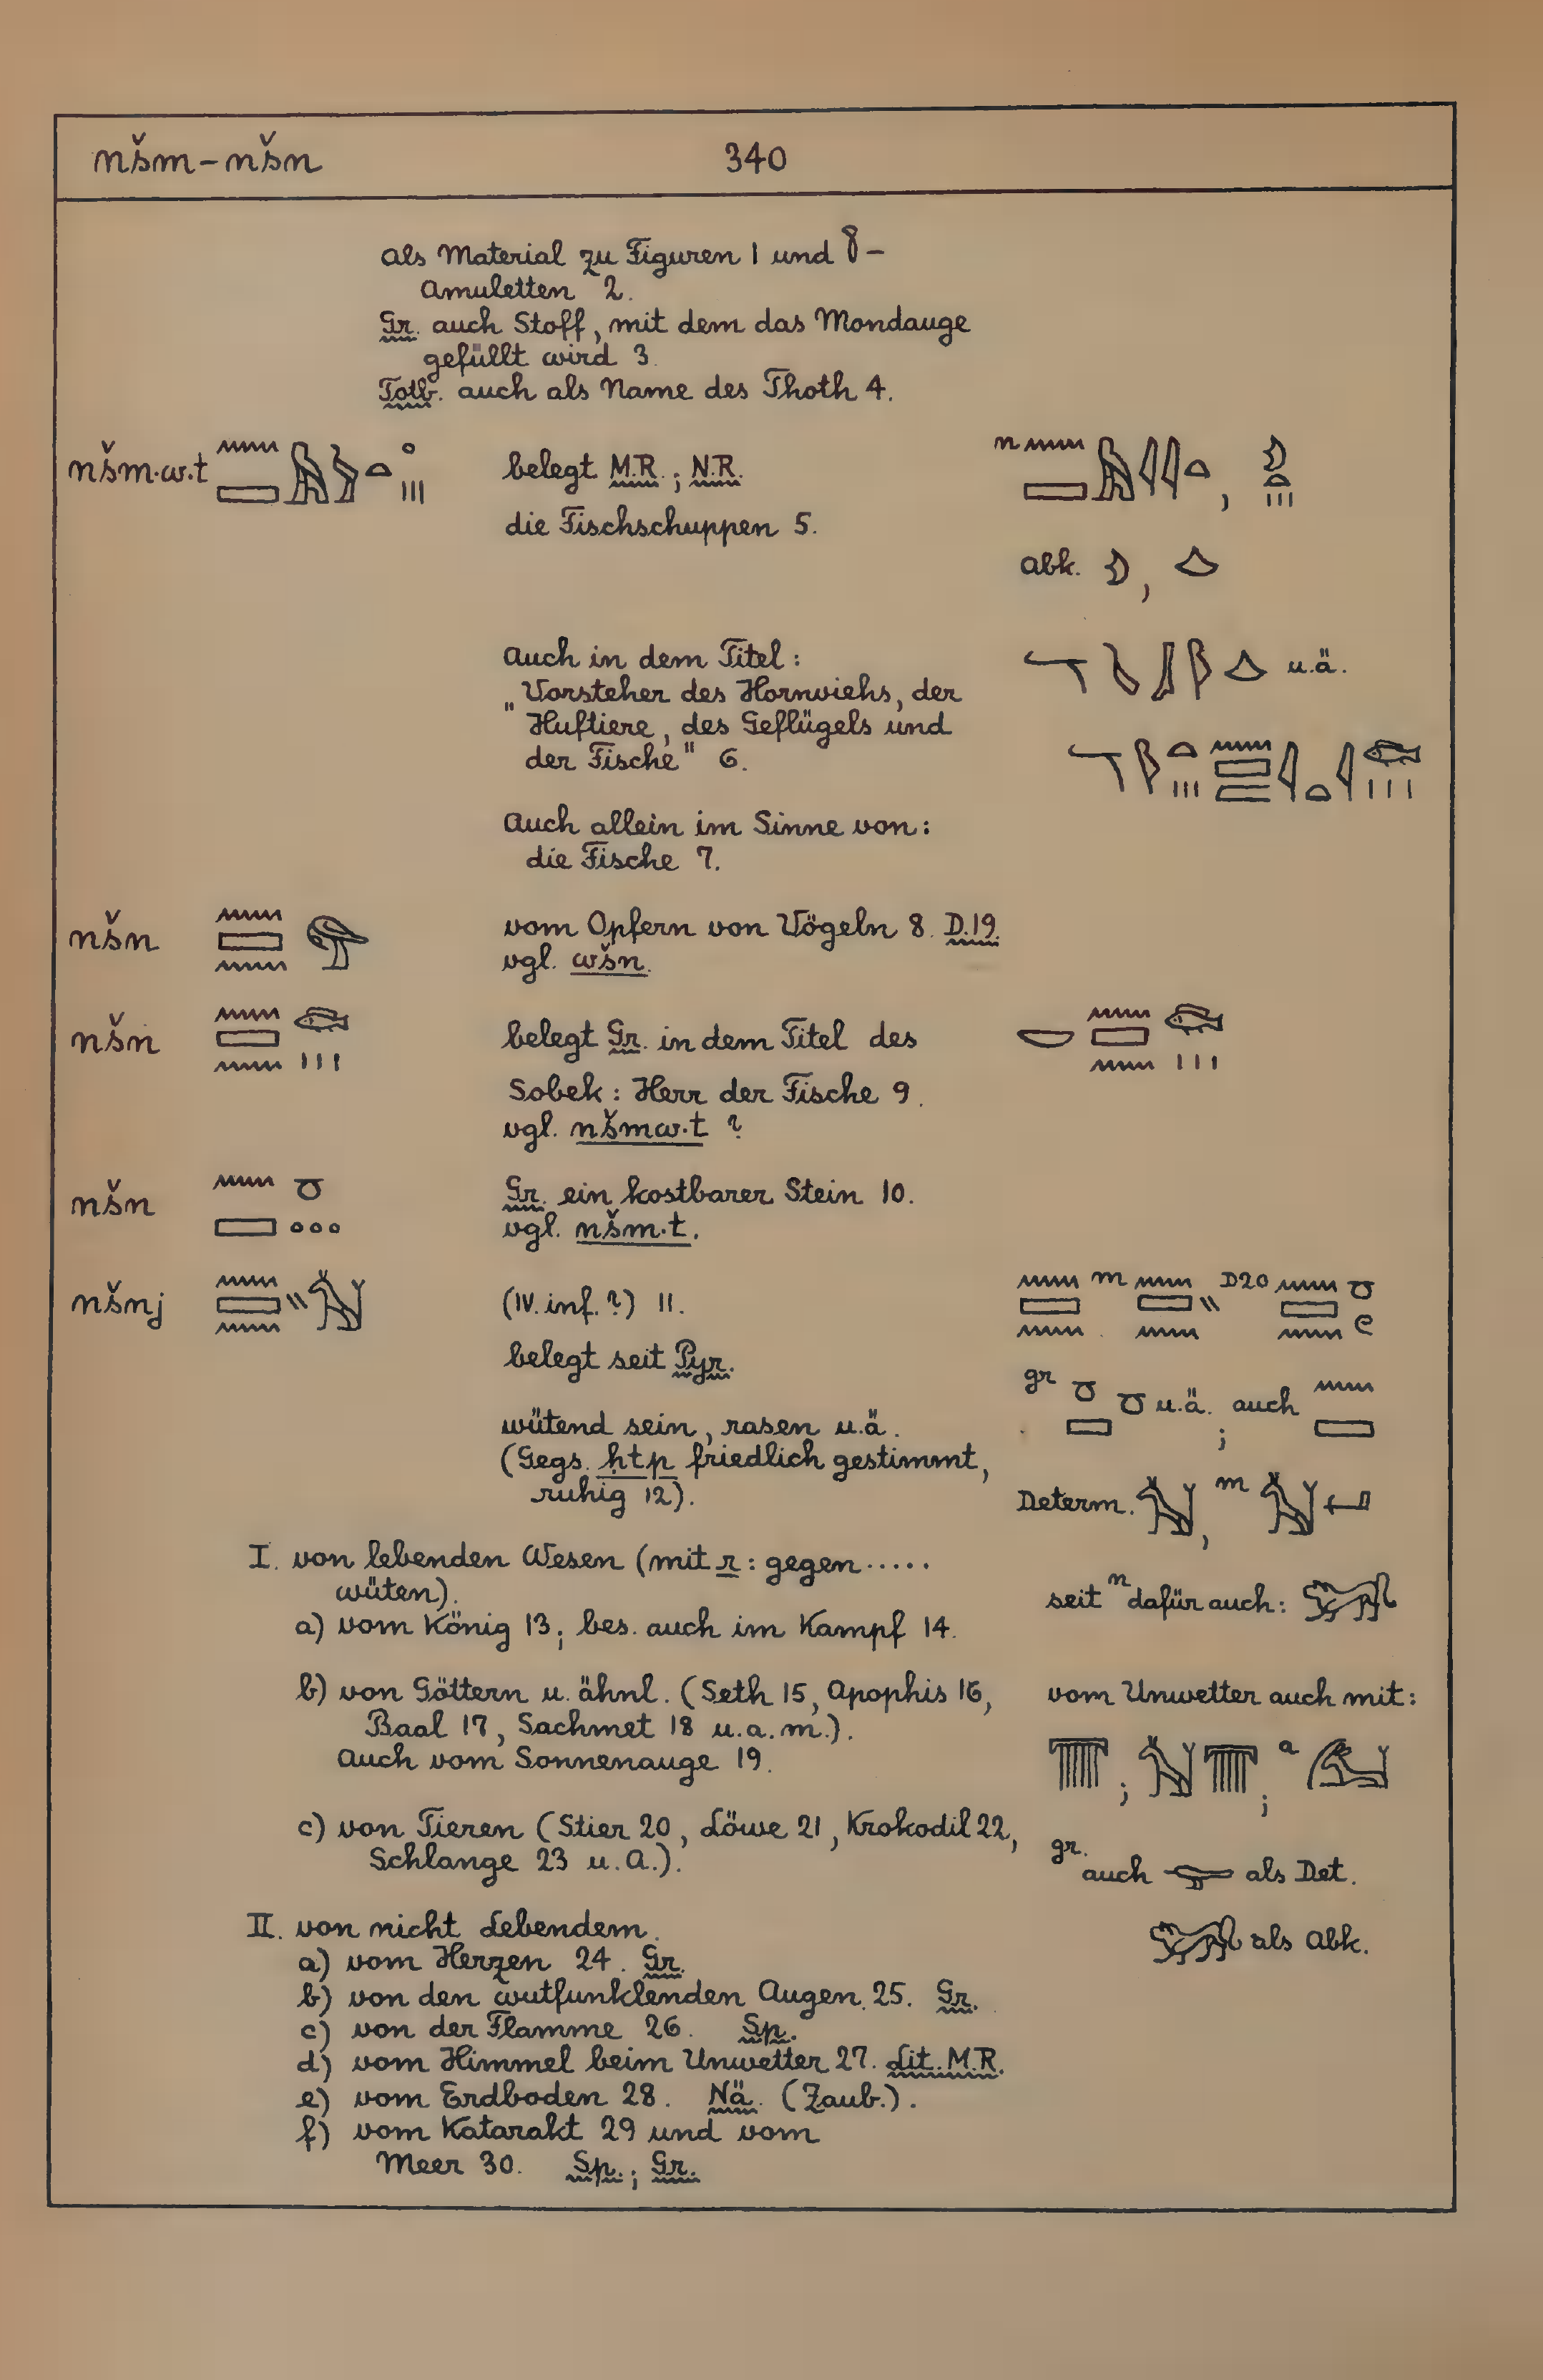 nšm-nšn 340
als Material zu Figuren 1 und 𓎬-
Amuletten 2.
Gr. auch Stoff, mit dem das Mondauge
gefüllt wird 3.
Totb. auch als Name des Thoth 4.
nšm·w·t belegt M.R.; N.R. n
die Fischschuppen 5.
abk.
Auch in dem Titel: u.ä.
„Vorsteher des Hornviehs, der
Huftiere, des Geflügels und
der Fische" 6.
Auch allein im Sinne von:
die Fische 7.
nšn vom Opfern von Vögeln 8. D.19.
vgl. wšn.
nšn belegt Gr. in dem Titel des
Sobek: Herr der Fische 9.
vgl. nšmw·t ?
nšn Gr. ein kostbarer Stein 10.
vgl. nšm·t.
nšnj (IV. inf. ?) 11. m D20
belegt seit Pyr.
gr u.ä.; auch
wütend sein, rasen u.ä.
(Gegs. ḥtp friedlich gestimmt,
ruhig 12).
Determ. , m
I. von lebenden Wesen (mit r: gegen .....
wüten).
seit n dafür auch:
a) vom König 13; bes. auch im Kampf 14.
b) von Göttern u. ähnl. (Seth 15, Apophis 16,
Baal 17, Sachmet 18 u.a.m.).
Auch vom Sonnenauge 19.
vom Unwetter auch mit:
; ; a
c) von Tieren (Stier 20, Löwe 21, Krokodil 22,
Schlange 23 u.a.).
gr. auch als Det.
II. von nicht Lebendem.
als Abk.
a) vom Herzen 24. Gr.
b) von den wutfunklenden Augen 25. Gr.
c) von der Flamme 26. Sp.
d) vom Himmel beim Unwetter 27. Lit. M.R.
e) vom Erdboden 28. Nä. (Zaub.).
f) vom Katarakt 29 und vom
Meer 30. Sp.; Gr.